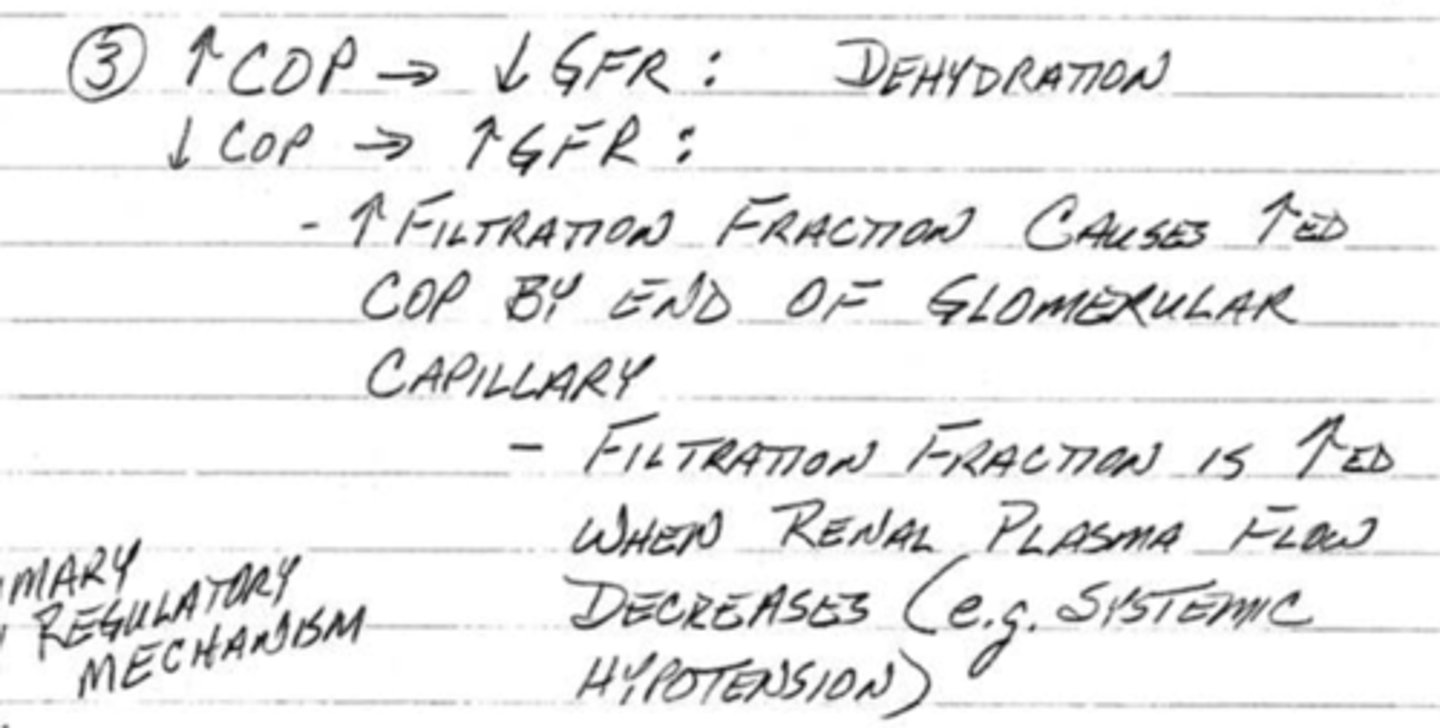 ③ ↑ COP → ↓ GFR : DEHYDRATION
↓ COP → ↑ GFR :
- ↑ FILTRATION FRACTION CAUSES ↑ED
COP BY END OF GLOMERULAR
CAPILLARY
- FILTRATION FRACTION IS ↑ED
WHEN RENAL PLASMA FLOW
DECREASES (e.g. SYSTEMIC
HYPOTENSION)
MARY
REGULATORY
MECHANISM